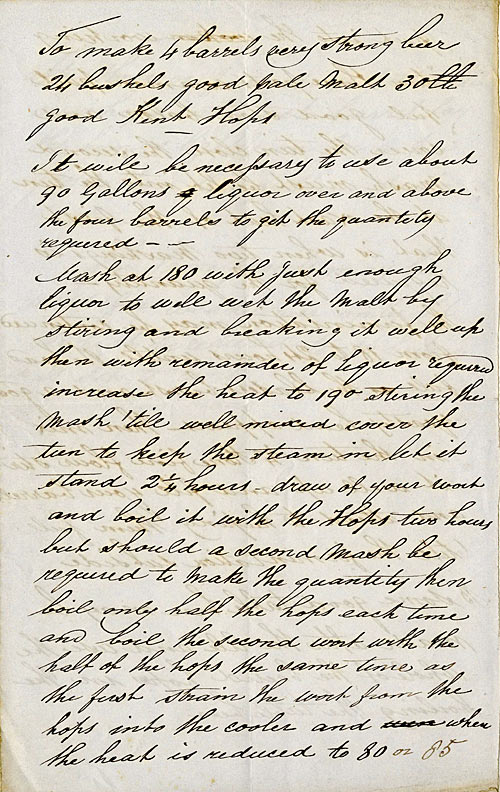 To make 4 barrels very strong beer
24 bushels good pale Malt 30 lb
good Kent Hops
It will be necessary to use about
90 Gallons liquor over and above
the four barrels to git the quantity
required – –
Mash at 180 with just enough
liquor to well wet the Malt by
stiring and breaking it well up
then with remainder of liquor required
increase the heat to 190 stiring the
Mash 'till well mixed cover the
tun to keep the steam in let it
stand 2¼ hours – draw of your wort
and boil it with the Hops two hours
but should a second Mash be
required to Make the quantity then
boil only half the hops each time
and boil the second wort with the
half of the hops the same time as
the first stram the wort from the
hops into the cooler and when
the heat is reduced to 80 or 85